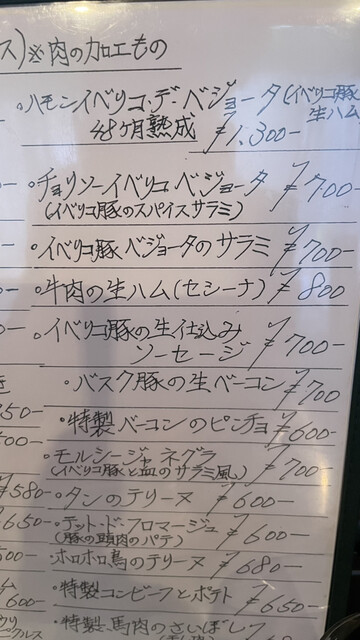 ス)※肉の加工もの
・ハモンイベリコ・デ・ベジョータ(イベリコ豚生ハム)
48ヶ月熟成 ¥1,300-
・チョリソーイベリコベジョータ ¥700
(イベリコ豚のスパイスサラミ)
・イベリコ豚ベジョータのサラミ ¥700-
・牛肉の生ハム(セシーナ) ¥800
・イベリコ豚の生仕込み
ソーセージ ¥700-
・バスク豚の生ベーコン ¥700
・特製ベーコンのピンチョ ¥600-
・モルシージャネグラ ¥700-
(イベリコ豚と血のサラミ風)
¥580-
・タンのテリーヌ ¥600-
650-
・テット・ド・フロマージュ ¥600-
(豚の頭肉のパテ)
・ホロホロ鳥のテリーヌ ¥680-
・特製コンビーフとポテト ¥650-
600-
・特製馬肉のさいぼし